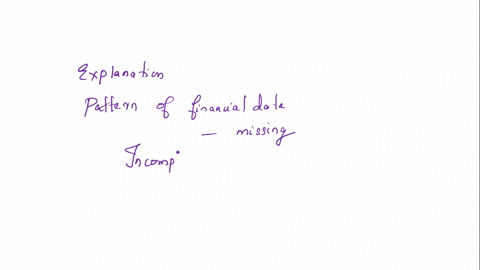 Explanation
Pattern of financial data
– missing
Incomp